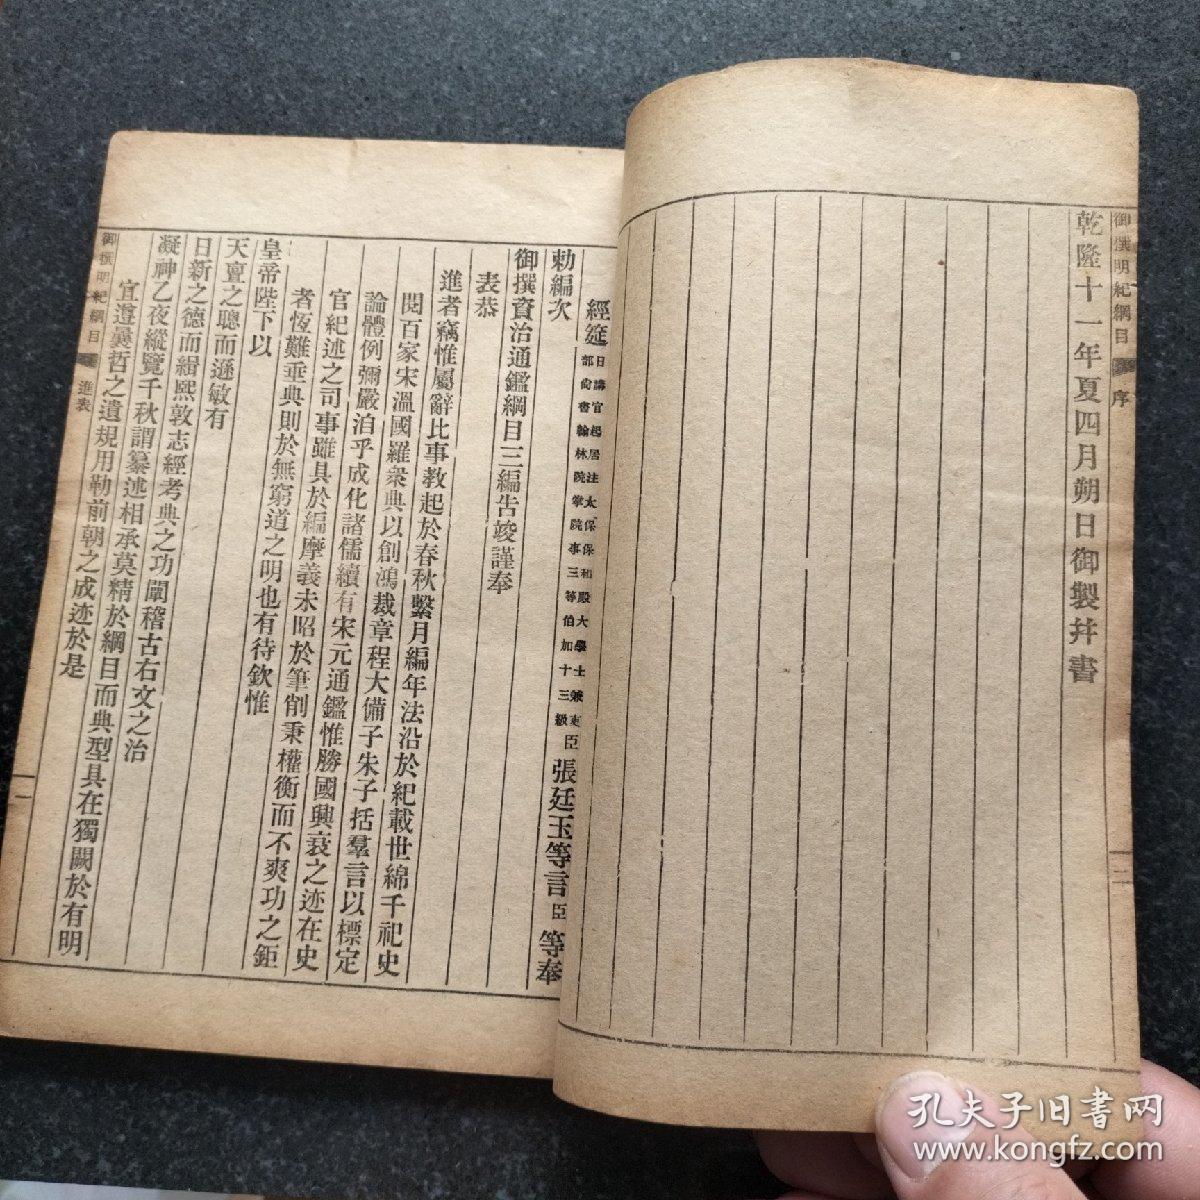 御撰明紀綱目
序
二
乾隆十一年夏四月朔日御製幷書
經筵日講官起居注太保保和殿大學士兼吏部尚書翰林院掌院事三等伯加十三級臣張廷玉等言臣等奉
勅編次
御撰資治通鑑綱目三編告竣謹奉
表恭
進者竊惟屬辭比事教起於春秋繫月編年法沿於紀載世綿千祀史
閱百家宋溫國羅衆典以創鴻裁章程大備子朱子括羣言以標定
論體例彌嚴洎乎成化諸儒續有宋元通鑑惟勝國興衰之迹在史
官紀述之司事雖具於編摩義未昭於筆削秉權衡而不爽功之鉅
者恆難垂典則於無窮道之明也有待欽惟
皇帝陛下以
天亶之聰而遜敏有
日新之德而緝熙敦志經考典之功闡稽古右文之治
凝神乙夜縱覽千秋謂纂述相承莫精於綱目而典型具在獨闕於有明
宜遵曩哲之遺規用勒前朝之成迹於是
御撰明紀綱目
進表
一
孔夫子旧书网
www.kongfz.com